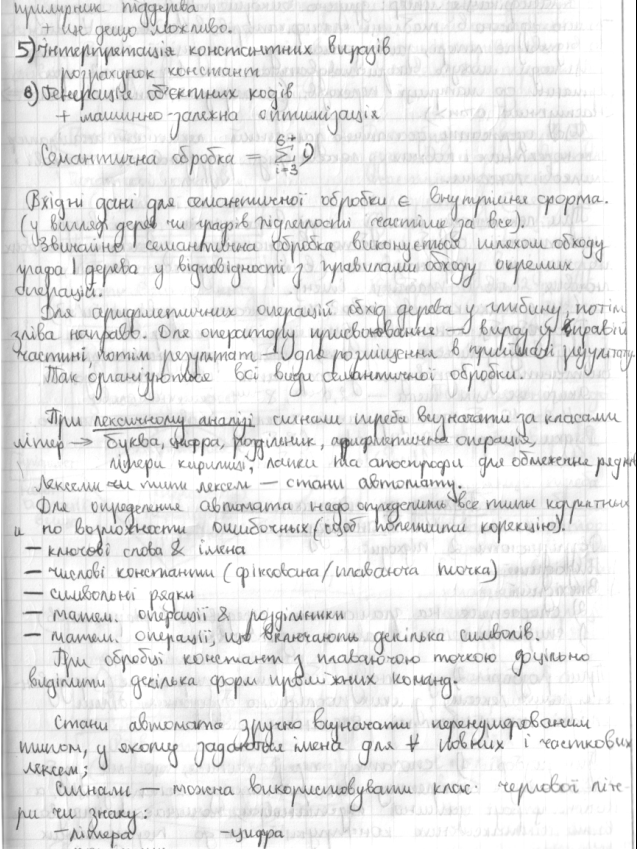 примірник піддерева
+ ще дещо можливо.
5) Інтерпретація константних виразів
розрахунок констант
6) Генерація об'єктних кодів
+ машинно-залежна оптимізація
Семантична обробка = Σ i=3
Вхідні дані для семантичної обробки є внутрішня форма.
(у вигляді дерев чи графів підлеглості частіше за все).
Звичайно семантична обробка виконується шляхом обходу
графа / дерева у відповідності з правилами обходу окремих
операцій.
Для арифметичних операцій обхід дерева у глибину, потім
зліва направо. Для оператору присвоювання — вираз у правій
частині, потім результат — для розміщення в результату.
Так організуються всі види семантичної обробки.
При лексичному аналізі сигнали треба визначати за класами
літер → буква, цифра, роздільник, арифметична операція,
літери кирилиці, лапки та апострофи для обмеження рядків
Лексеми чи типи лексем — стани автомату.
Для определения автомата надо определить все типы корректных
и по возможности ошибочных (щоб полегшити корекцію).
— ключові слова & імена
— числові константи (фіксована/плаваюча точка)
— символьні рядки
— матем. операції & роздільники
— матем. операції, що включають декілька символів.
При обробці констант з плаваючою точкою доцільно
виділити декілька форм проміжних команд.
Стани автомата зручно визначати перенумерованим
типом, у якому задаються імена для ∀ повних і часткових
лексем;
Сигнали — можна використовувати клас чергової літе-
ри чи знаку:
— літера — цифра